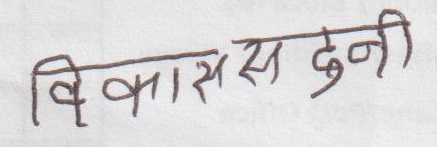 विकास सदुनी